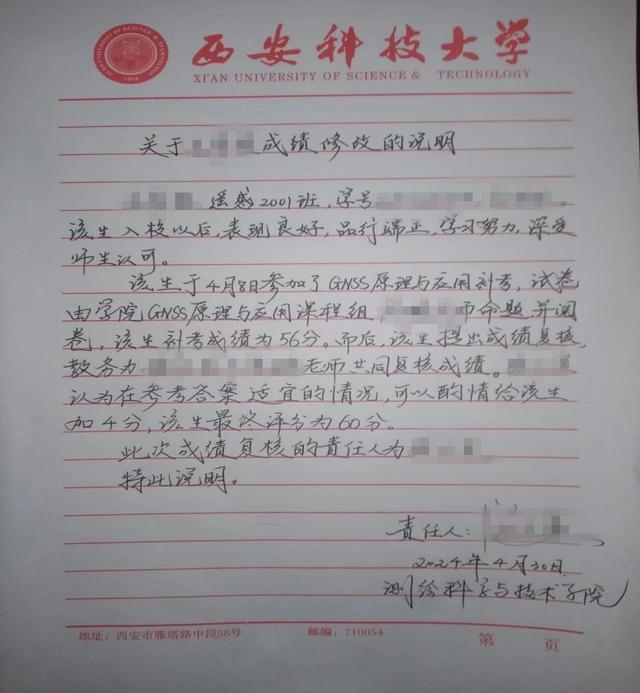 西安科技大学
XI'AN UNIVERSITY OF SCIENCE & TECHNOLOGY
关于 成绩修改的说明
遥感2001班,学号 。
该生入校以后,表现良好,品行端正,学习努力,深受
师生认可。
该生于4月8日参加了GNSS原理与应用补考,试卷
由学院GNSS原理与应用课程组 师命题并阅
卷,该生补考成绩为56分。而后,该生提出成绩复核,
教务为 老师共同复核成绩。
认为在参考答案适宜的情况,可以酌情给该生
加4分,该生最终评分为60分。
此次成绩复核的责任人为 。
特此说明。
责任人:
2024年4月30日
测绘科学与技术学院
地址:西安市雁塔路中段58号 邮编:710054 第 页